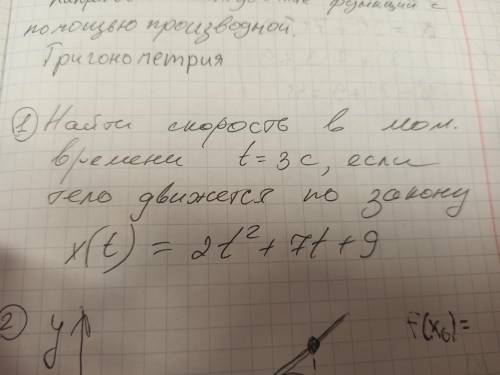 функций с
помощью производной.
Тригонометрия
1 Найти скорость в мом.
времени t = 3 с, если
тело движется по закону
x(t) = 2t² + 7t + 9
2 y F(x₀) =